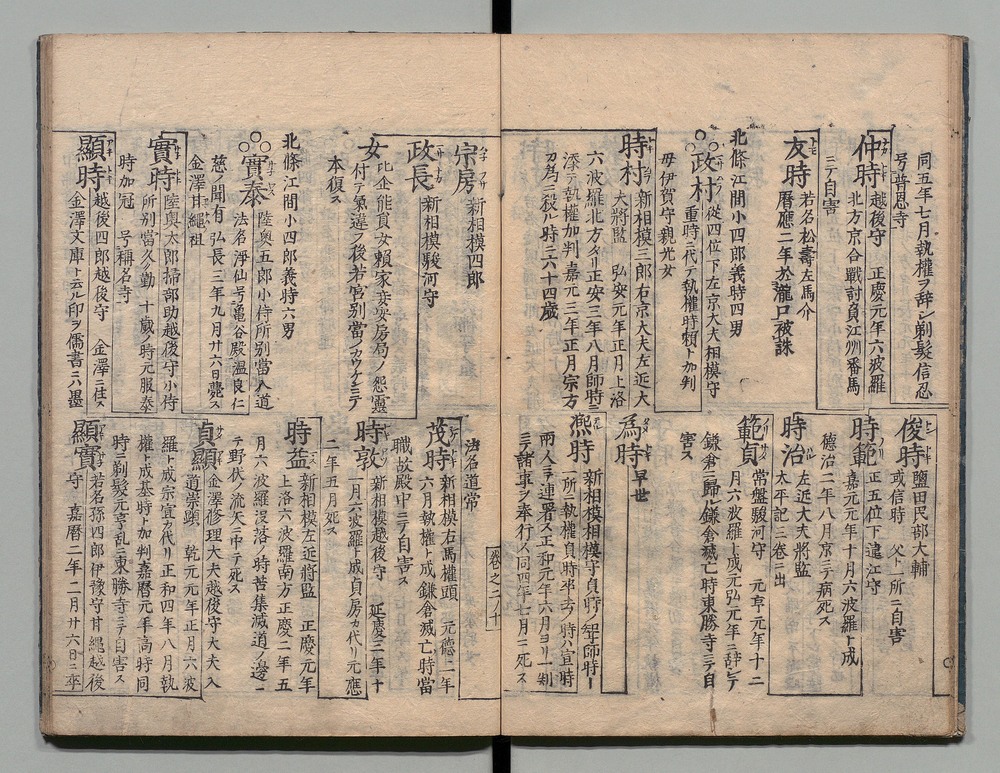 同五年七月執權ヲ辞シ剃髪信忍
号普恩寺
仲時 越後守 正慶元年六波羅
北方京合戰討負江州番馬
ニテ自害
友時 若名松壽左馬介
暦應二年於瀧口被誅
北條江間小四郎義時四男
政村 從四位下左京大夫相模守
重時ニ代テ執權時頼ト加判
母伊賀守親光女
時村 新相模三郎右京大夫左近大
夫將監 弘安元年正月上洛
六波羅北方タリ正安三年八月師時ニ
添テ執權加判嘉元三年正月宗方
カ為ニ殺ル時ニ六十四歳
俊時 鹽田民部大輔
或信時 父ト一所ニ自害
時範 正五位下遠江守
嘉元元年十月六波羅ト成
德治二年八月京ニテ病死ス
時治 左近大夫將監
太平記ニ三巻ニ出
範貞 常盤駿河守 元亨元年十二
月六波羅ト成元弘元年ニ辞シテ
鎌倉ニ歸ル鎌倉滅亡時東勝寺ニテ自
害ス
為時 早世
熙時 新相模相模守貞時ノ聟師時ト
一所ニ執權貞時卒去ノ時ハ宣時
兩人ヲ連署ス正和元年六月ヨリ一判
ニテ諸事ヲ奉行ス同四年七月ニ死ス
宗房 新相模四郎
政長 新相模駿河守
女 比企能員女頼家妾妾房局ノ怨靈
付テ氣違フ後若宮別當ツカウケシニテ
本復ス
北條江間小四郎義時六男
實泰 陸奥五郎小侍所別當入道
法名淨仙号亀谷殿溫良仁
慈ノ聞有 弘長三年九月廿六日薨ス
金澤甘繩祖
實時 陸奥太郎掃部助越後守小侍
所別當久ク勤 十歳ノ時元服泰
時加冠 号稱名寺
顯時 越後四郎越後守 金澤ニ住ス
金澤文庫ト云ル印ヲ儒書ニハ墨
巻之二ノ十
法名道常
茂時 新相模右馬權頭 元德二年
六月執權ト成鎌倉滅亡時當
職故殿中ニテ自害ス
時敦 新相模越後守 延慶三年十
一月六波羅ト成貞房カ代リ元應
二年五月死ス
時益 新相模左近將監 正慶元年
上洛六波羅南方正慶二年五
月六波羅没落ノ時苦集滅道ノ邊ニ
テ野伏ノ流矢ニ中テ死ス
貞顯 金澤修理大夫越後守大夫入
道崇顕 乾元元年正月六波
羅ト成宗宣カ代リ正和四年八月執
權ト成基時ト加判嘉暦元年高時同
時ニ剃髪元亨乱ニ東勝寺ニテ自害ス
顯實 若名孫四郎伊豫守甘繩越後
守 嘉暦二年二月廿六日ニ卒